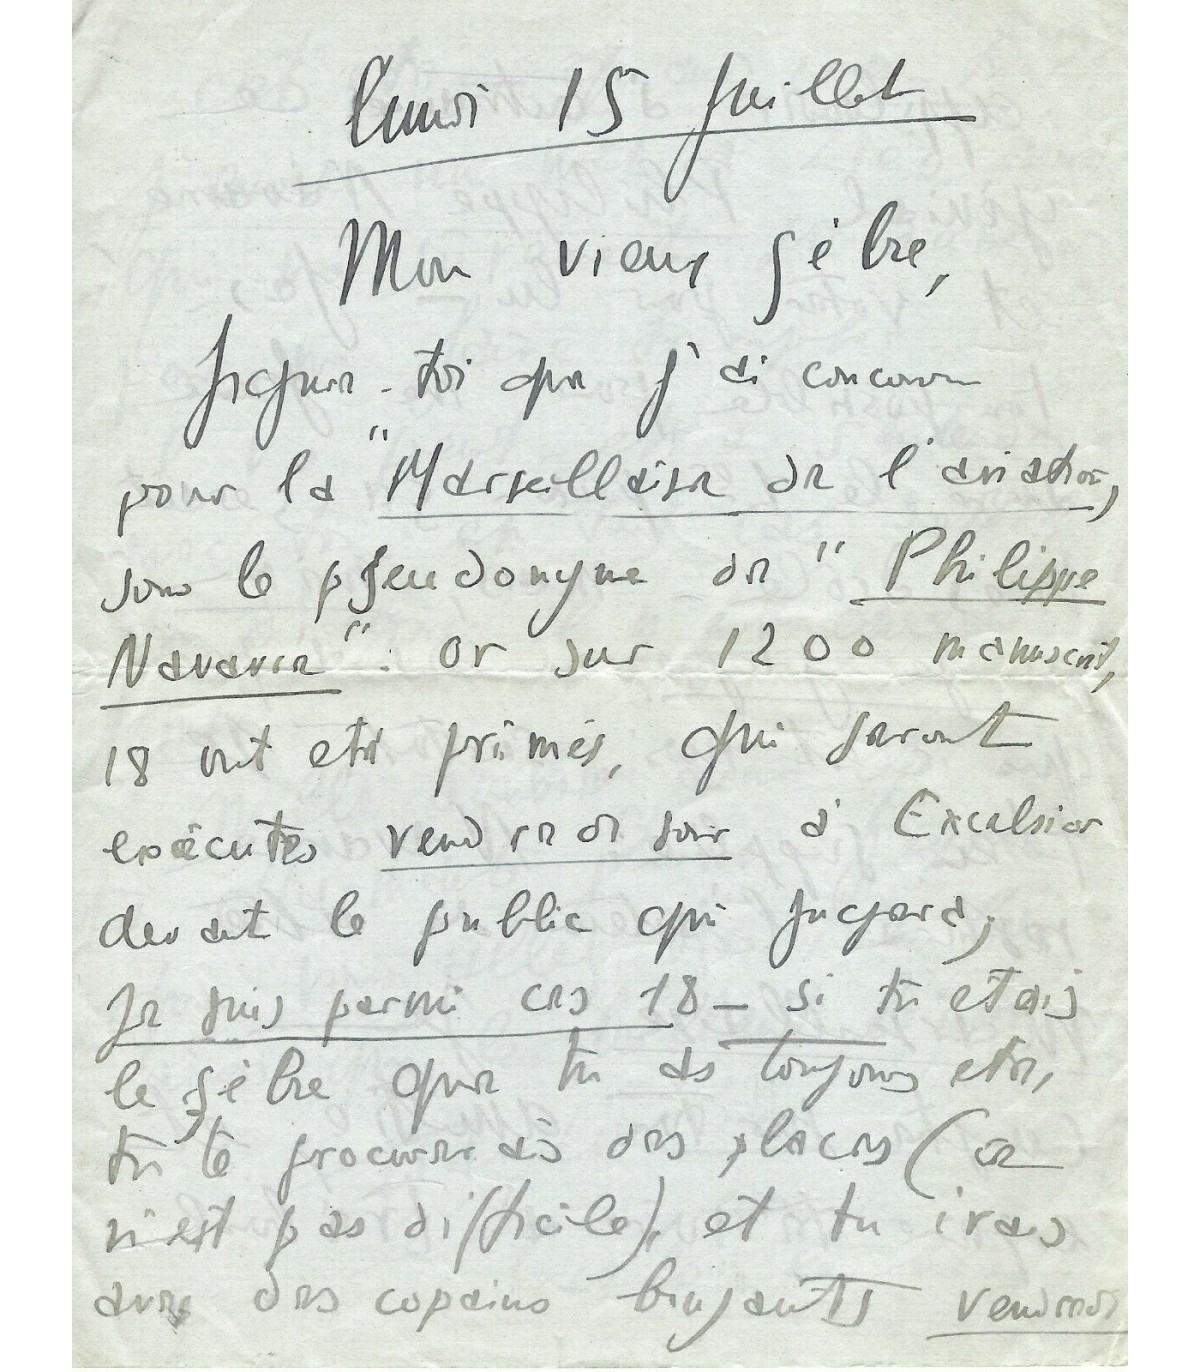 lundi 15 juillet
Mon vieux zèbre,
figure-toi que j'ai concouru
pour la "Marseillaise de l'aviation,
sous le pseudonyme de "Philippe
Navarre". Or sur 1200 manuscrits,
18 ont été primés, qui seront
exécutés vendredi soir à Excelsior
devant le public qui jugera;
Je suis parmi ces 18 – si tu étais
le zèbre que tu as toujours été,
tu te procurerais des places (ce
n'est pas difficile), et tu irais
avec des copains bruyants vendredi